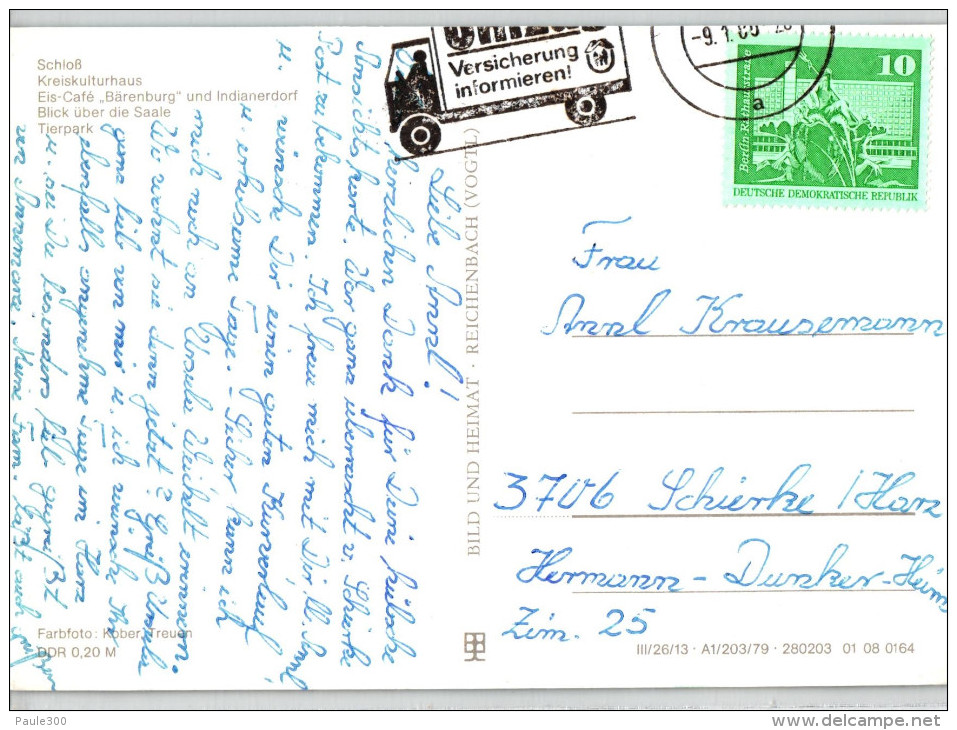 Schloß
Kreiskulturhaus
Eis-Café „Bärenburg" und Indianerdorf
Blick über die Saale
Tierpark
Umzug
Versicherung
informieren!
-9.1.80
a
10
Berlin Rathausstraße
DEUTSCHE DEMOKRATISCHE REPUBLIK
Liebe Annl!
Herzlichen Dank für Deine hübsche
Ansichtskarte. War ganz überrascht v. Schierke
Post zu bekommen. Ich freue mich mit Dir, ll. Annl,
u. wünsche Dir einen guten Kurverlauf
u. erholsame Tage. – Sicher kann ich
mich noch an Ursula Weihelt erinnern.
Wo wohnt sie denn jetzt? Grüß Ursula
ganz lieb von mir u. ich wünsche Ihr
ebenfalls angenehme Tage im Harz
u. sei Du besonders lieb gegrüßt
von Annemarie. Meine Fam. läßt auch
BILD UND HEIMAT · REICHENBACH (VOGTL)
Frau
Annl Krausemann
3706 Schierke / Harz
Hermann-Dunker-Heim
Zim. 25
Farbfoto: Kober, Treuen
DDR 0,20 M
III/26/13 · A1/203/79 · 280203 01 08 0164
Paule300
delcampe.net